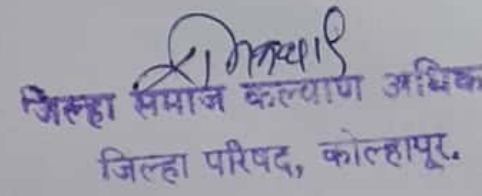 जिल्हा समाज कल्याण अधिक
जिल्हा परिषद, कोल्हापूर.